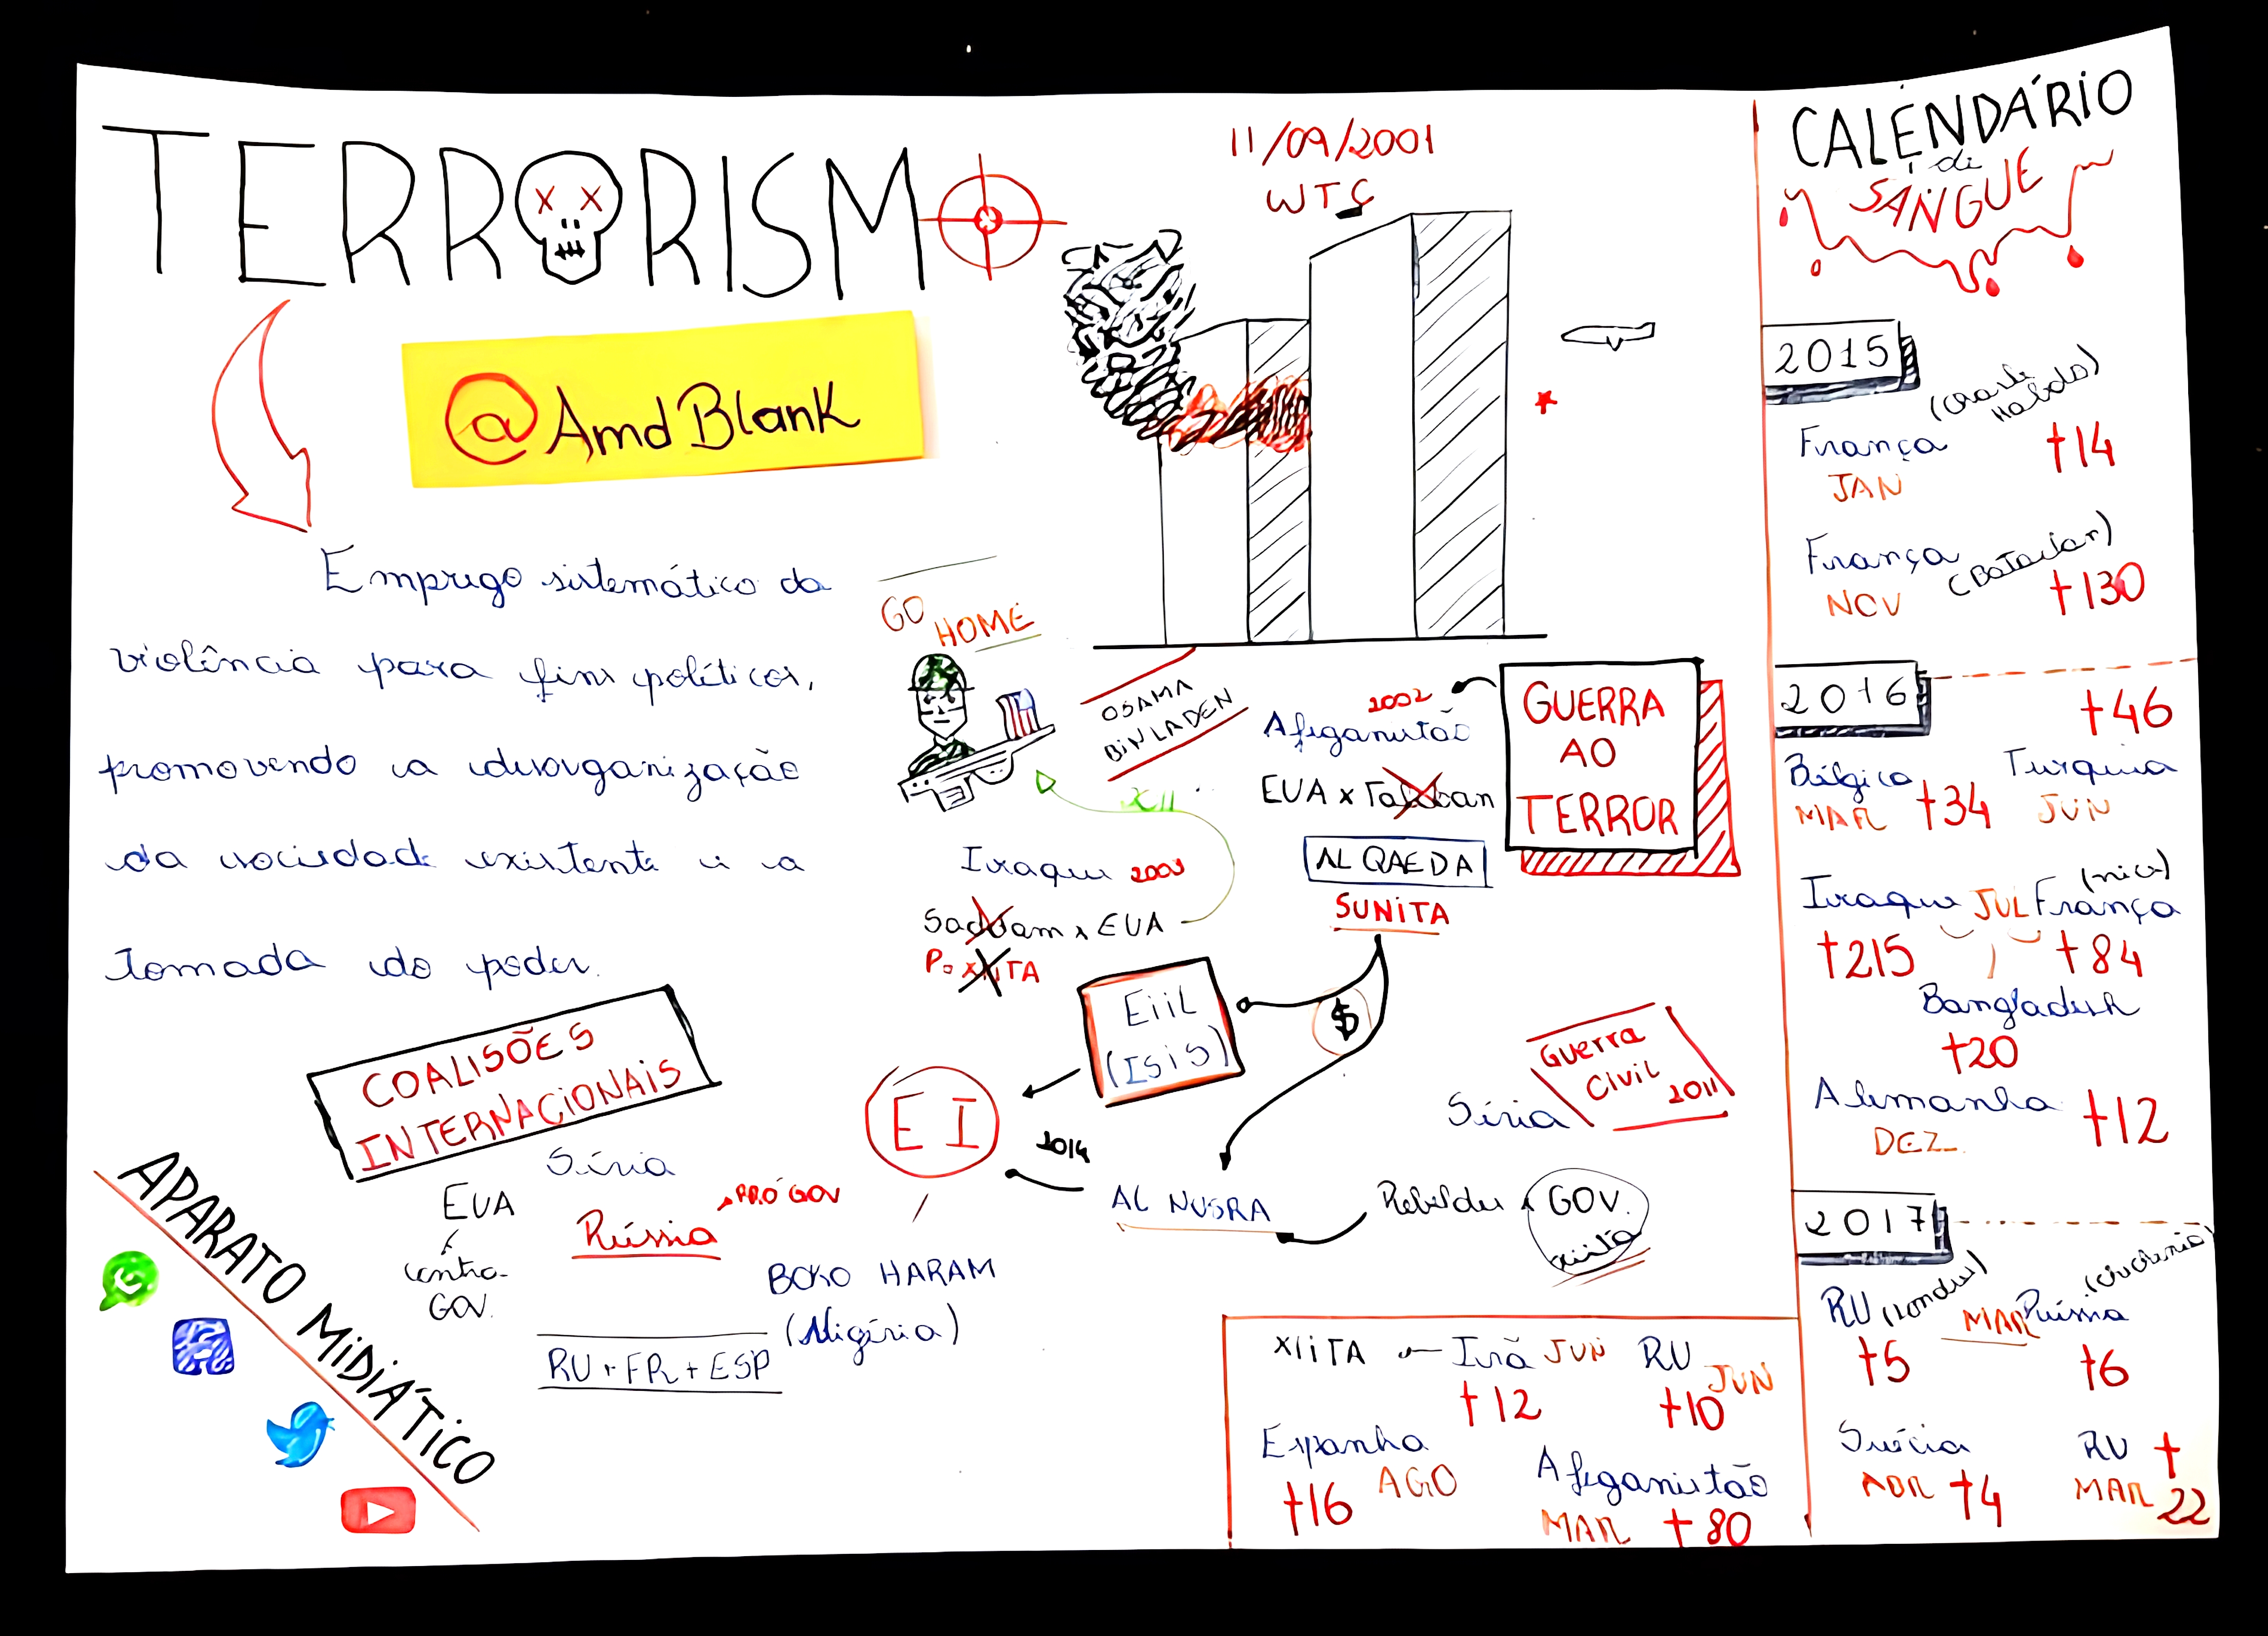 TERRORISMO
@AmdBlank
Emprego sistemático da
violência para fins políticos,
promovendo a desorganização
da sociedade existente e a
tomada do poder.
11/09/2001
WTC
GO
HOME
OSAMA
BIN LADEN
GUERRA
AO
TERROR
2002
Afeganistão
EUA x Taliban
AL QAEDA
SUNITA
XII
Iraque 2003
Saddam x EUA
XIITA
EIIL
(ISIS)
$
EI
2014
AL NUSRA
Guerra
Civil
2011
Síria
Rebeldes x GOV.
xiita
BOKO HARAM
(Nigéria)
COALISÕES
INTERNACIONAIS
Síria
EUA
Contra-
GOV.
Rússia
PRÓ GOV
RU + FR + ESP
APARATO MIDIÁTICO
CALENDÁRIO
de
SANGUE
2015
França (Charlie
Hebdo)
JAN †14
França (Bataclan)
NOV †130
2016
†46
Bélgica Turquia
MAR †34 JUN
Iraque JUL França (nice)
†215 †84
Bangladesh
†20
Alemanha †12
DEZ
2017
RU (Londres) MAR Rússia (Chechenia)
†5 †6
Suécia RU †
ABR †4 MAR 22
XIITA Irã JUN RU JUN
†12 †10
Espanha
†16 AGO
Afeganistão
MAR †80